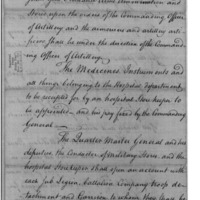 Stores upon the orders of the Commanding Officer
of Artillery and the armourers and artillery art-
ificers shall be under the direction of the Command-
ing Officer of Artillery.
The Medicines Instruments and
all things belonging to the Hospital Department
to be receipted for by an hospital Storekeeper to
be appointed, and his pay fixed by the Commanding
General
The Quarter Master General and his
deputies the Conductor of Military Stores and the
hospital Storekeeper shall open an account with
each
Regiment, Battalion Company Troop de-
tachment and Garrison to whom they